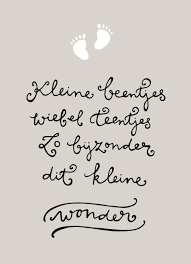 Kleine beentjes
wiebel teentjes
Zo bijzonder
dit kleine
wonder